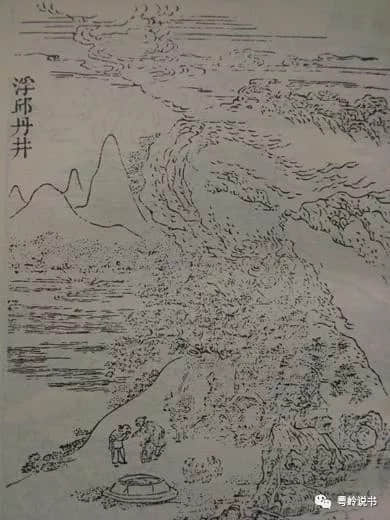 浮邱丹井
粤岭说书